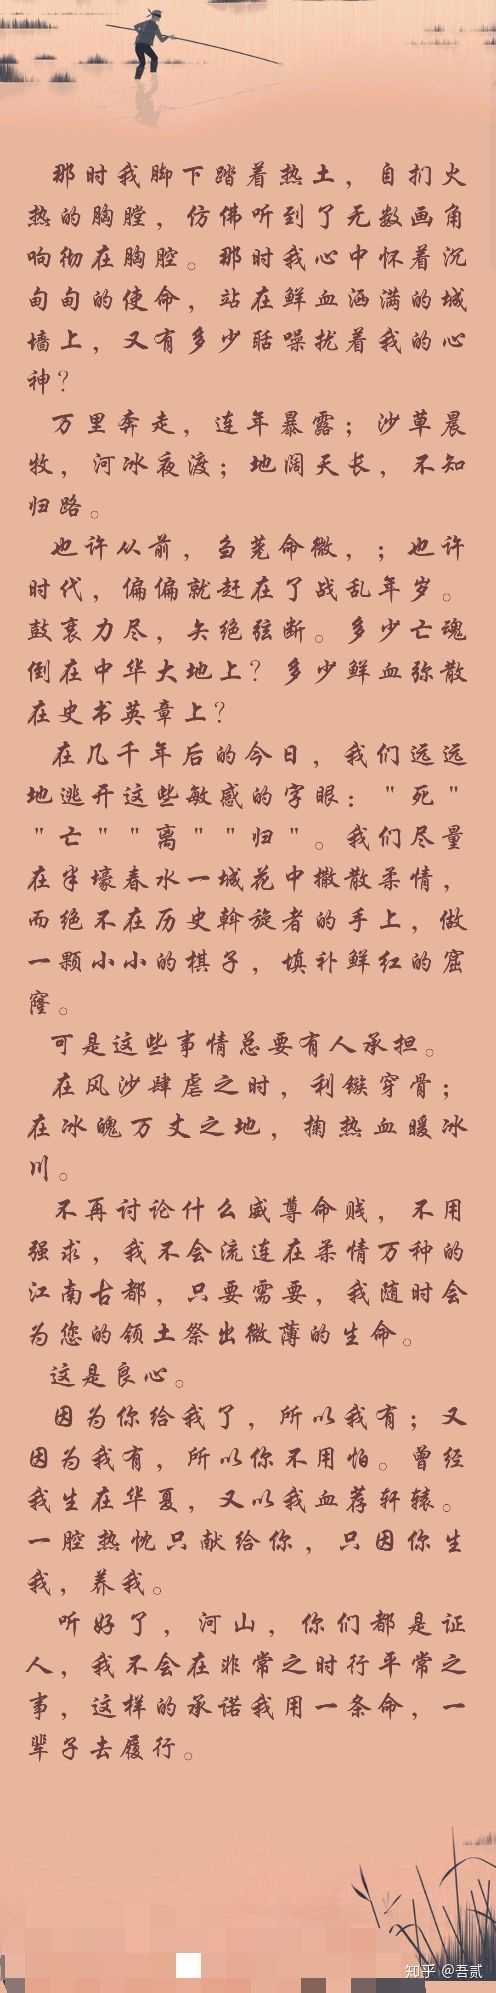 那时我脚下踏着热土，自扪火
热的胸膛，仿佛听到了无数画角
响彻在胸腔。那时我心中怀着沉
甸甸的使命，站在鲜血洒满的城
墙上，又有多少聒噪扰着我的心
神？
万里奔走，连年暴露；沙草晨
牧，河冰夜渡；地阔天长，不知
归路。
也许从前，刍荛命微，；也许
时代，偏偏就赶在了战乱年岁。
鼓衰力尽，矢绝弦断。多少亡魂
倒在中华大地上？多少鲜血弥散
在史书英章上？
在几千年后的今日，我们远远
地逃开这些敏感的字眼："死"
"亡""离""归"。我们尽量
在半壕春水一城花中撒散柔情，
而绝不在历史斡旋者的手上，做
一颗小小的棋子，填补鲜红的窟
窿。
可是这些事情总要有人承担。
在风沙肆虐之时，利镞穿骨；
在冰魄万丈之地，掬热血暖冰
川。
不再讨论什么威尊命贱，不用
强求，我不会流连在柔情万种的
江南古都，只要需要，我随时会
为您的领土祭出微薄的生命。
这是良心。
因为你给我了，所以我有；又
因为我有，所以你不用怕。曾经
我生在华夏，又以我血荐轩辕。
一腔热忱只献给你，只因你生
我，养我。
听好了，河山，你们都是证
人，我不会在非常之时行平常之
事，这样的承诺我用一条命，一
辈子去履行。
知乎 @吾贰